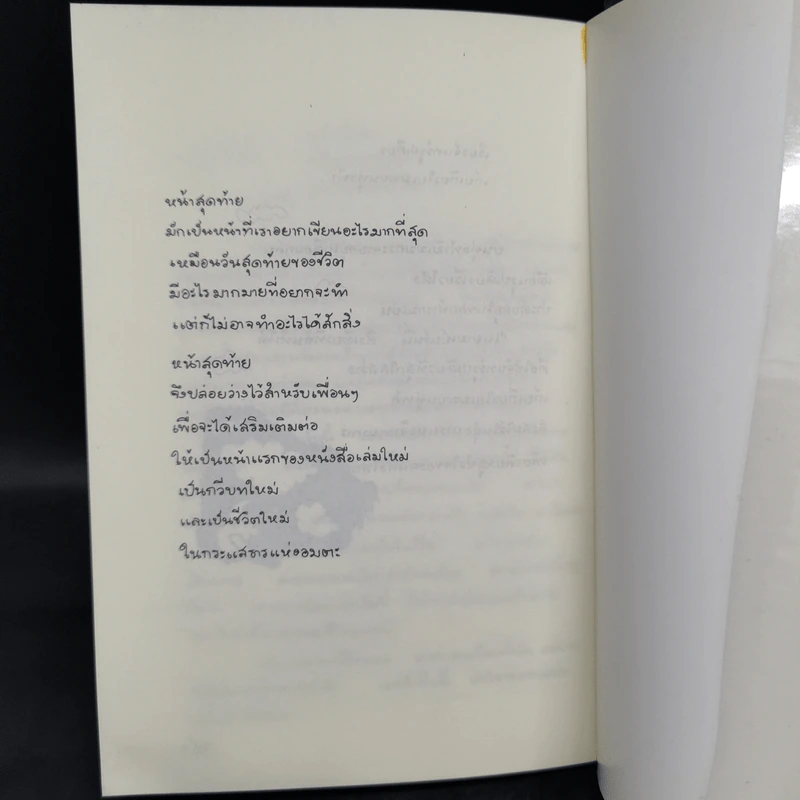 หน้าสุดท้าย
มักเป็นหน้าที่เราอยากเขียนอะไรมากที่สุด
เหมือนวันสุดท้ายของชีวิต
มีอะไรมากมายที่อยากจะทำ
แต่ก็ไม่อาจทำอะไรได้สักสิ่ง
หน้าสุดท้าย
จึงปล่อยว่างไว้สำหรับเพื่อนๆ
เพื่อจะได้เสริมเติมต่อ
ให้เป็นหน้าแรกของหนังสือเล่มใหม่
เป็นกวีบทใหม่
และเป็นชีวิตใหม่
ในกระแสธารแห่งอมตะ